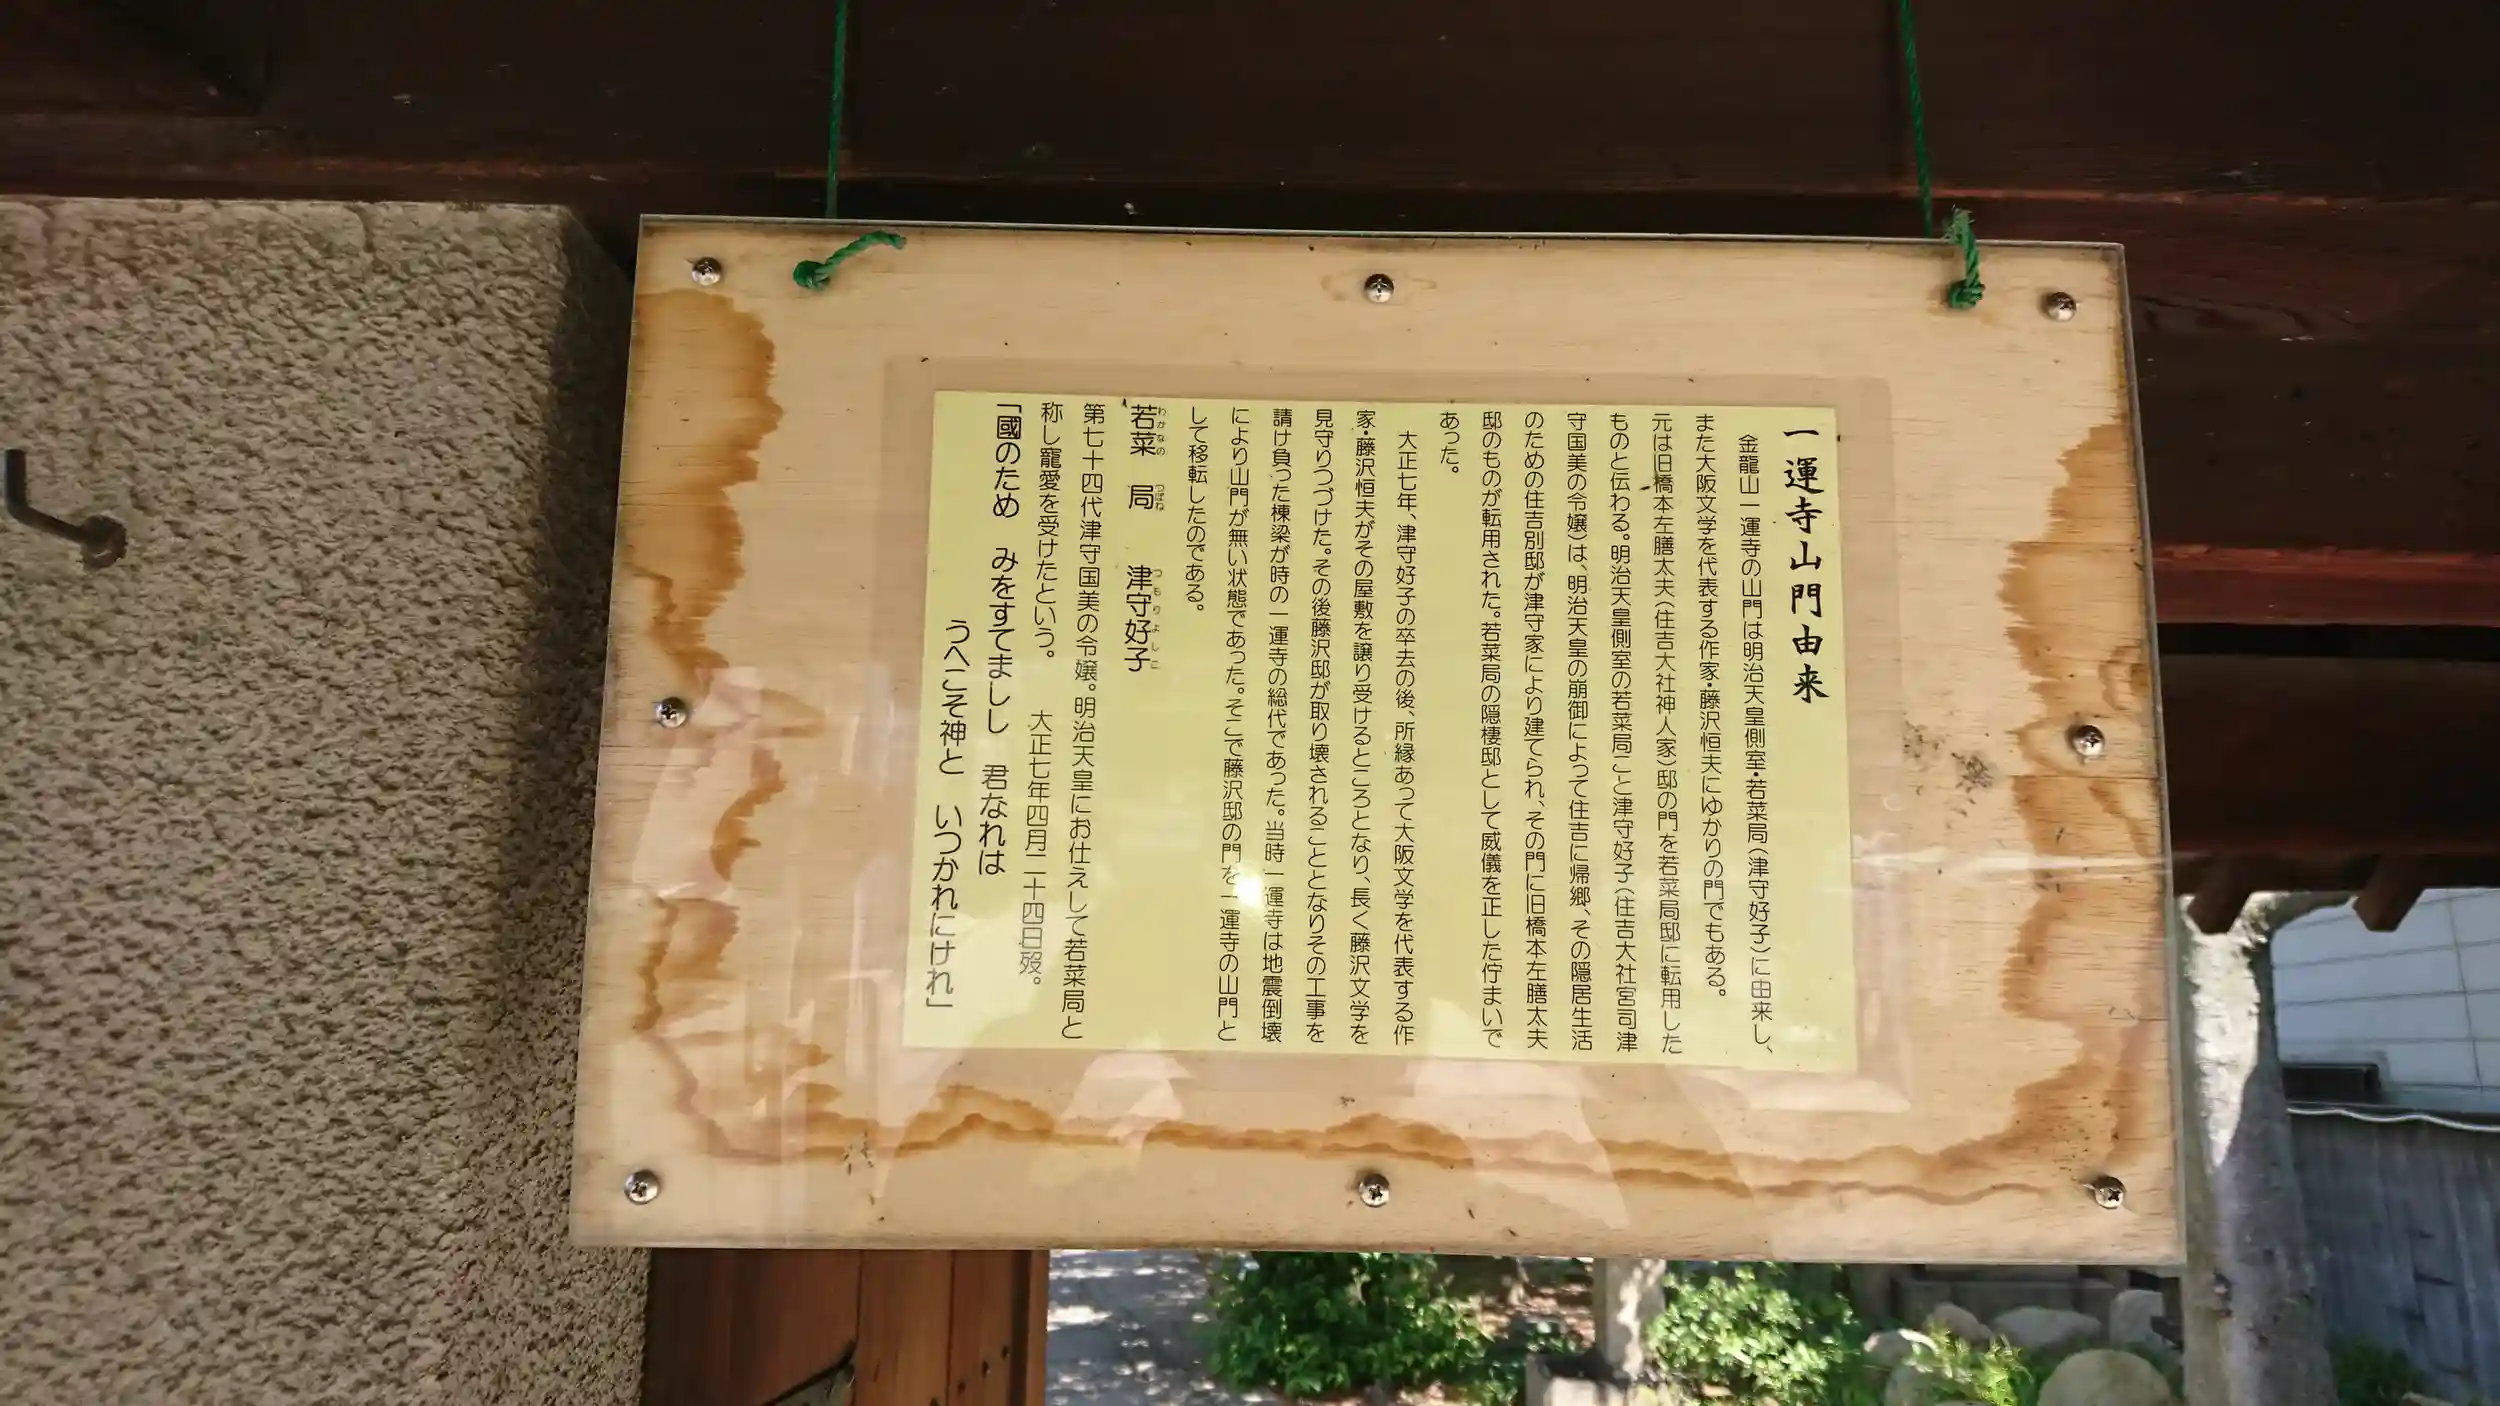 一運寺山門由来
金龍山一運寺の山門は明治天皇側室・若菜局(津守好子)に由来し、
また大阪文学を代表する作家・藤沢恒夫にゆかりの門でもある。
元は旧橋本左膳太夫(住吉大社神人家)邸の門を若菜局邸に転用した
ものと伝わる。明治天皇側室の若菜局こと津守好子(住吉大社宮司津
守国美の令嬢)は、明治天皇の崩御によって住吉に帰郷、その隠居生活
のための住吉別邸が津守家により建てられ、その門に旧橋本左膳太夫
邸のものが転用された。若菜局の隠棲邸として威儀を正した佇まいで
あった。
大正七年、津守好子の卒去の後、所縁あって大阪文学を代表する作
家・藤沢恒夫がその屋敷を譲り受けるところとなり、長く藤沢文学を
見守りつづけた。その後藤沢邸が取り壊されることとなりその工事を
請け負った棟梁が時の一運寺の総代であった。当時一運寺は地震倒壊
により山門が無い状態であった。そこで藤沢邸の門を一運寺の山門と
して移転したのである。
若菜 局 津守好子
わかなの つぼね つもりよしこ
第七十四代津守国美の令嬢。明治天皇にお仕えして若菜局と
称し寵愛を受けたという。 大正七年四月二十四日歿。
「國のため みをすてましし 君なれは
うへこそ神と いつかれにけれ」